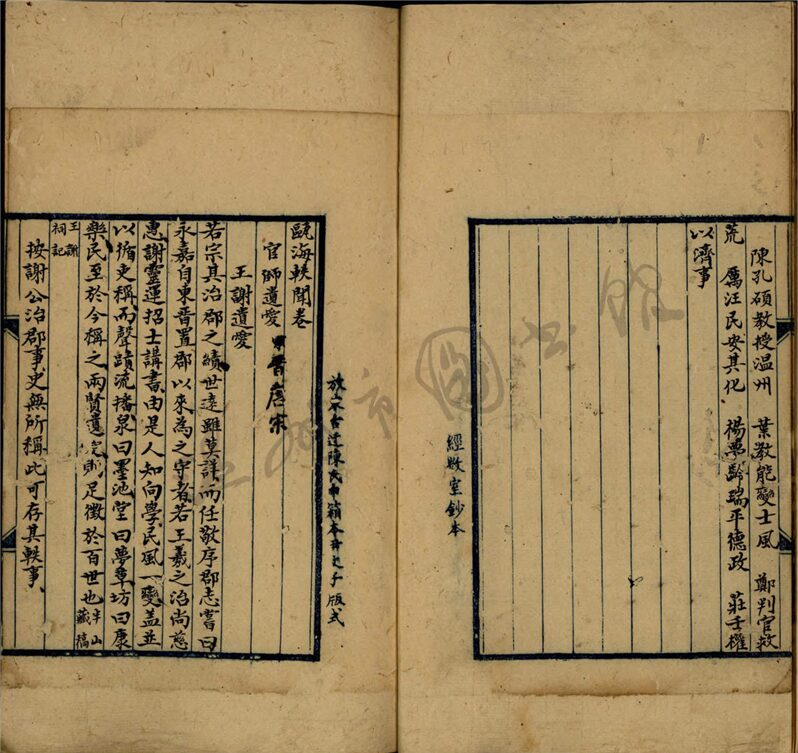 陳孔碩教授溫州 葉教能變士風 鄭判官救
荒 厲汪民安其化 楊夢齡瑞平德政 莊壬
以濟事
經敉室鈔本
放宋台陳氏巾箱本子版式
甌海軼聞卷
官師遺愛 晉唐宋
王謝遺愛
若宗其治郡之績世遠雖莫詳而任敬序郡志嘗曰
永嘉自東晉置郡以來為之守者若王羲之治尚慈
惠謝靈運招士講書由是人知向學民風一變蓋並
以循吏稱而聲蹟流播泉曰墨池堂曰夢草坊曰康
樂民至於今稱之兩賢遺愛則足徵於百世也半山藏稿
王謝祠記
按謝公治郡事史無所稱此可存其軼事
州市圖書館